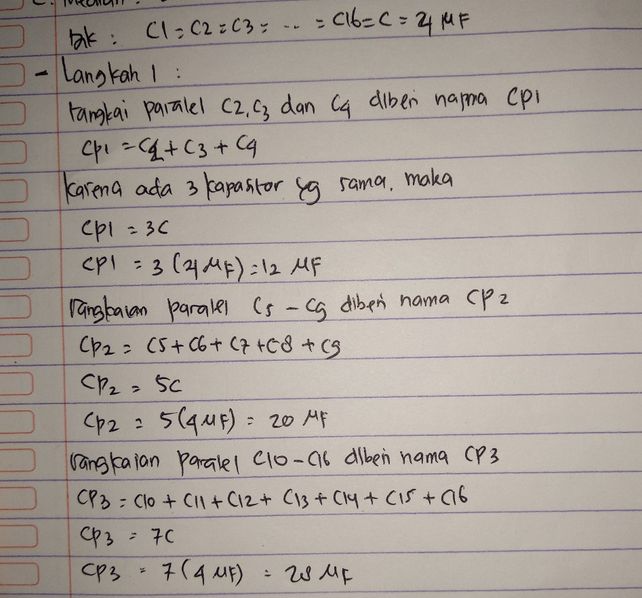 C. Median :
Dik : C1 = C2 = C3 = ... = C16 = C = 4 μF
- Langkah 1 :
rangkai paralel C2, C3 dan C4 diberi nama Cp1
Cp1 = C2 + C3 + C4
karena ada 3 kapasitor yg sama, maka
Cp1 = 3C
Cp1 = 3 (4 μF) = 12 μF
rangkaian paralel C5 - C9 diberi nama Cp2
Cp2 = C5 + C6 + C7 + C8 + C9
Cp2 = 5C
Cp2 = 5 (4 μF) = 20 μF
rangkaian paralel C10 - C16 diberi nama CP3
CP3 = C10 + C11 + C12 + C13 + C14 + C15 + C16
CP3 = 7C
CP3 = 7 (4 μF) = 28 μF